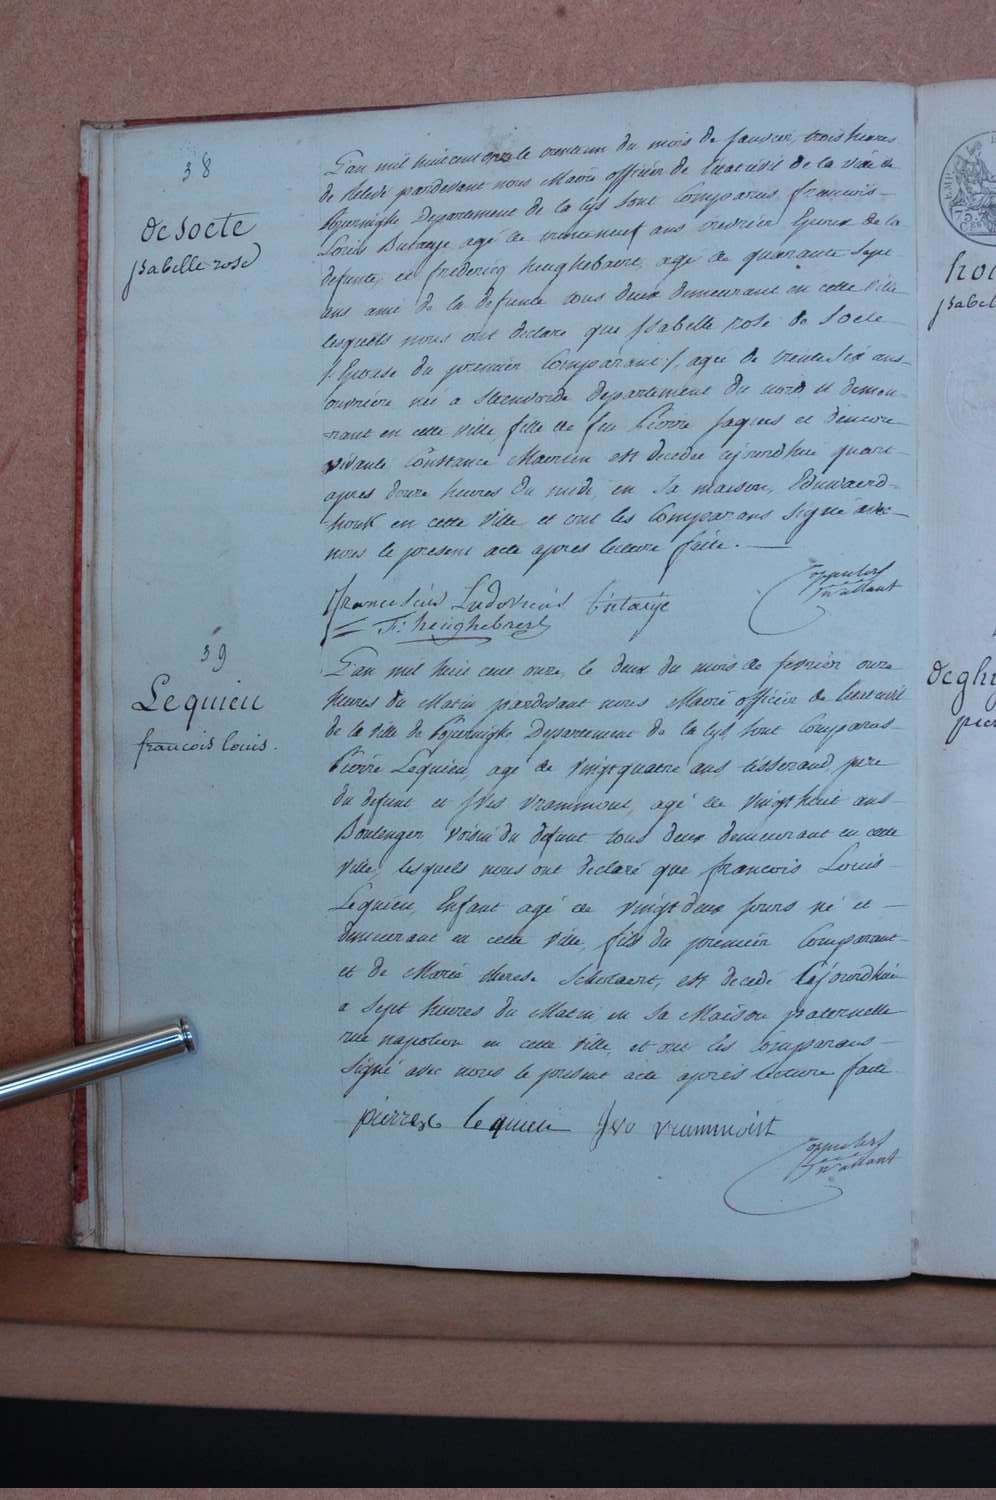 38
de Socte
isabelle rose
L'an mil huit cent onze le trente un du mois de Janvier, trois heures
de Relevé pardevant nous Maire officier de l'état civil de la ville de
Poperinghe Departement de la Lys sont Comparus, francois
Louis agé de trente neuf ans ouvrier, Epoux de la
defunte, et fredericq heughebaert, agé de quarante sept
ans ami de la defunte tous deux demeurant en cette ville
lesquels nous ont declaré que Isabelle rose de Socte
/: Epouse du premier Comparant :/, agée de trente six ans
ouvriere née a Steenvorde departement du nord et demeu-
rant en cette ville, fille de feu Pierre Jaques et d'encore
vivante Constance est decedée ajourdhui quart
apres douze heures du midi, en sa maison,
en cette ville, et ont les Comparans signé avec
nous le present acte apres lecture faite.
franciscus Ludovicus
F: heughebaert
39
Lequieu
francois louis.
L'an mil huit cent onze, le deux du mois de fevrier onze
heures du Matin pardevant nous Maire officier de l'etat civil
de la ville de Poperinghe Departement de la Lys, sont Comparus
Pierre Lequieu, agé de vingt quatre ans tisserand, pere
du defunt et Ives vrammont, agé de vingt huit ans
Boulenger, voisin du defunt tous deux demeurant en cette
ville, lesquels nous ont declaré que francois Louis
Lequieu, Enfant agé de vingt deux jours né et
demeurant en cette ville, fils du premier Comparant
et de Marie therese est decedé ajourdhui
a sept heures du Matin en sa Maison paternelle
rue napoleon en cette ville, et ont les Comparans
signé avec nous le present acte après lecture faite
pierre lequieu Ivo vrammoit
75
isabel